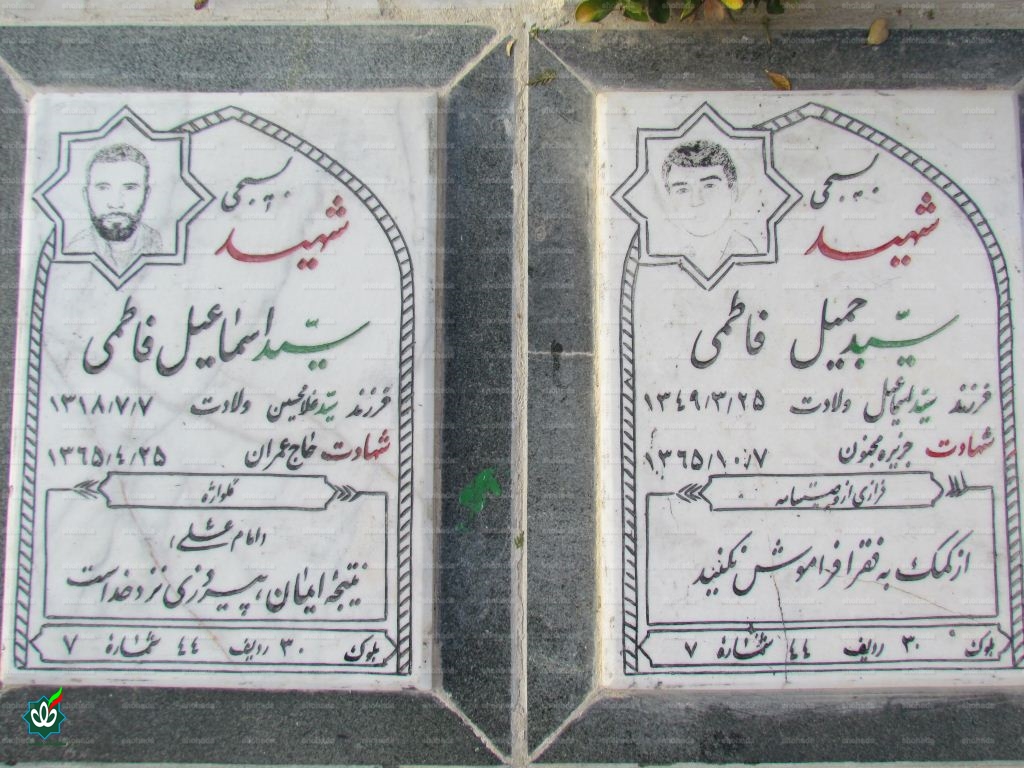 بسیجی
شهید
سیّد جمیل فاطمی
فرزند سیّد اسماعیل ولادت ۱۳۴۹/۳/۲۵
شهادت جزیره مجنون ۱۳۶۵/۱۰/۷
فرازی از وصیتنامه
از کمک به فقرا فراموش نکنید
بلوک ۳۰ ردیف ۴۴ شمارهٔ ۷
بسیجی
شهید
سیّد اسماعیل فاطمی
فرزند سیّد غلامحسین ولادت ۱۳۱۸/۷/۷
شهادت حاج عمران ۱۳۶۵/۴/۲۵
گلواژه
(امام علی ع)
نتیجه ایمان، پیروزی نزد خداست
بلوک ۳۰ ردیف ۴۴ شمارهٔ ۷